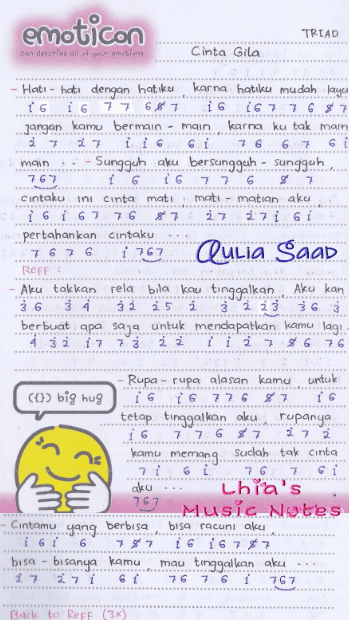 emoticon
can describe all of your emotions
TRIAD
Cinta Gila
- Hati - hati dengan hatiku, karna hatiku mudah layu
i 6 i 6 7 7 6 8 7 i 6 i 6 7 7 6 8 7
jangan kamu bermain - main, karna ku tak main
2 7 2 7 i i 6 6 i 7 6 6 7 6 i
main ... - Sungguh aku bersungguh - sungguh,
7 6 7 i 6 i 6 7 7 6 8 7
cintaku ini cinta mati - mati - matian aku,
i 6 i 6 7 7 6 8 7 2 7 2 7 i 6 i
pertahankan cintaku ...
7 6 7 6 i 7 6 7
Aulia Saad
Reff :
- Aku takkan rela bila kau tinggalkan, Aku kan
3 6 3 4 3 2 2 5 2 3 2 2 3 3 6 3
berbuat apa saja untuk mendapatkan kamu lagi
4 3 3 2 i 7 7 3 2 2 i i 2 7 8 6 7 6
({}) big hug
- Rupa - rupa alasan kamu, untuk
i 6 i 6 7 7 6 8 7 i 6
tetap tinggalkan aku, rupanya
i 6 7 7 6 8 7 2 7 2
kamu memang sudah tak cinta
7 i 6 i 7 6 7 6 i
aku ...
7 6 7
Lhia's
Music Notes
- Cintamu yang berbisa, bisa racuni aku,
i 6 i 6 7 8 7 i 6 i 6 7 8 7
bisa - bisanya kamu, mau tinggalkan aku ...
2 7 2 7 i 6 i 7 6 7 6 i 7 6 7
Back to Reff (3x)